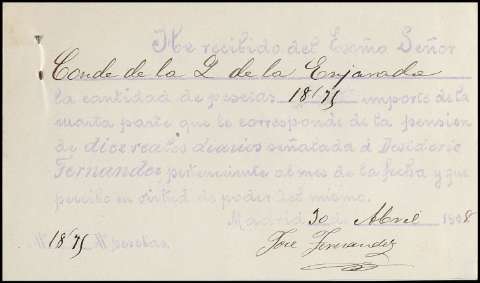 He recibido del Excmo Señor
Conde de la Q de la Enjarada
la cantidad de pesetas 18'75 importe de la
cuarta parte que le corresponde de la pension
de diez reales diarios señalada á Desiderio
Fernandez perteneciente al mes de la fecha y que
percibo en virtud de poder del mismo.
Madrid 30 de Abril 1908
18'75 pesetas
José Fernandez